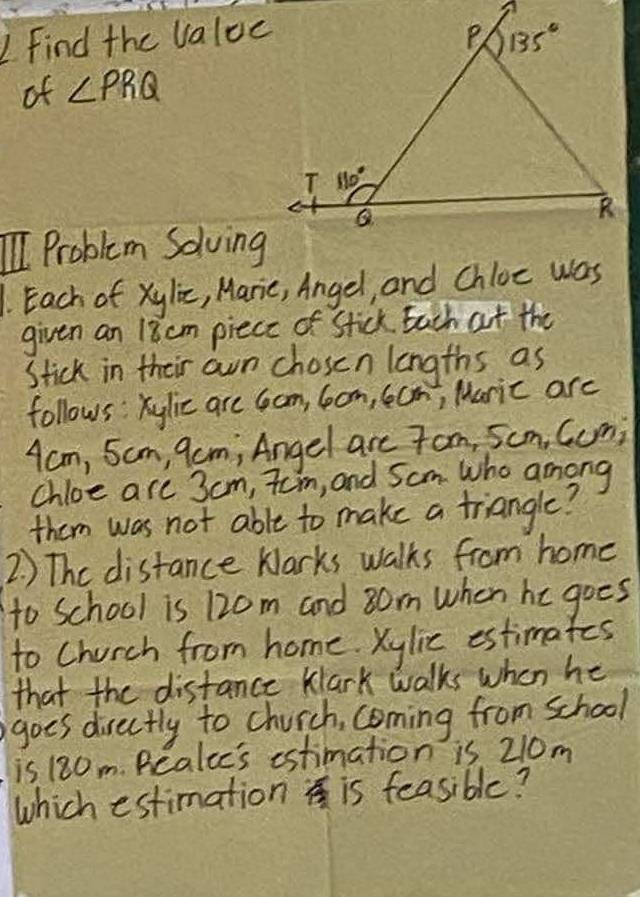 2 Find the Value
of ∠PRQ
P 135°
T 110°
Q R
III Problem Solving
1. Each of Xylie, Marie, Angel, and Chloe was
given an 18cm piece of Stick. Each cut the
Stick in their own chosen lengths as
follows: Xylie are 6cm, 6cm, 6cm, Marie are
4cm, 5cm, 9cm; Angel are 7cm, 5cm, 6cm;
Chloe are 3cm, 7cm, and 5cm. Who among
them was not able to make a triangle?
2.) The distance Klarks walks from home
to School is 120m and 80m when he goes
to Church from home. Xylie estimates
that the distance Klark walks when he
goes directly to church, coming from School
is 180m. Realee's estimation is 210m
Which estimation is feasible?